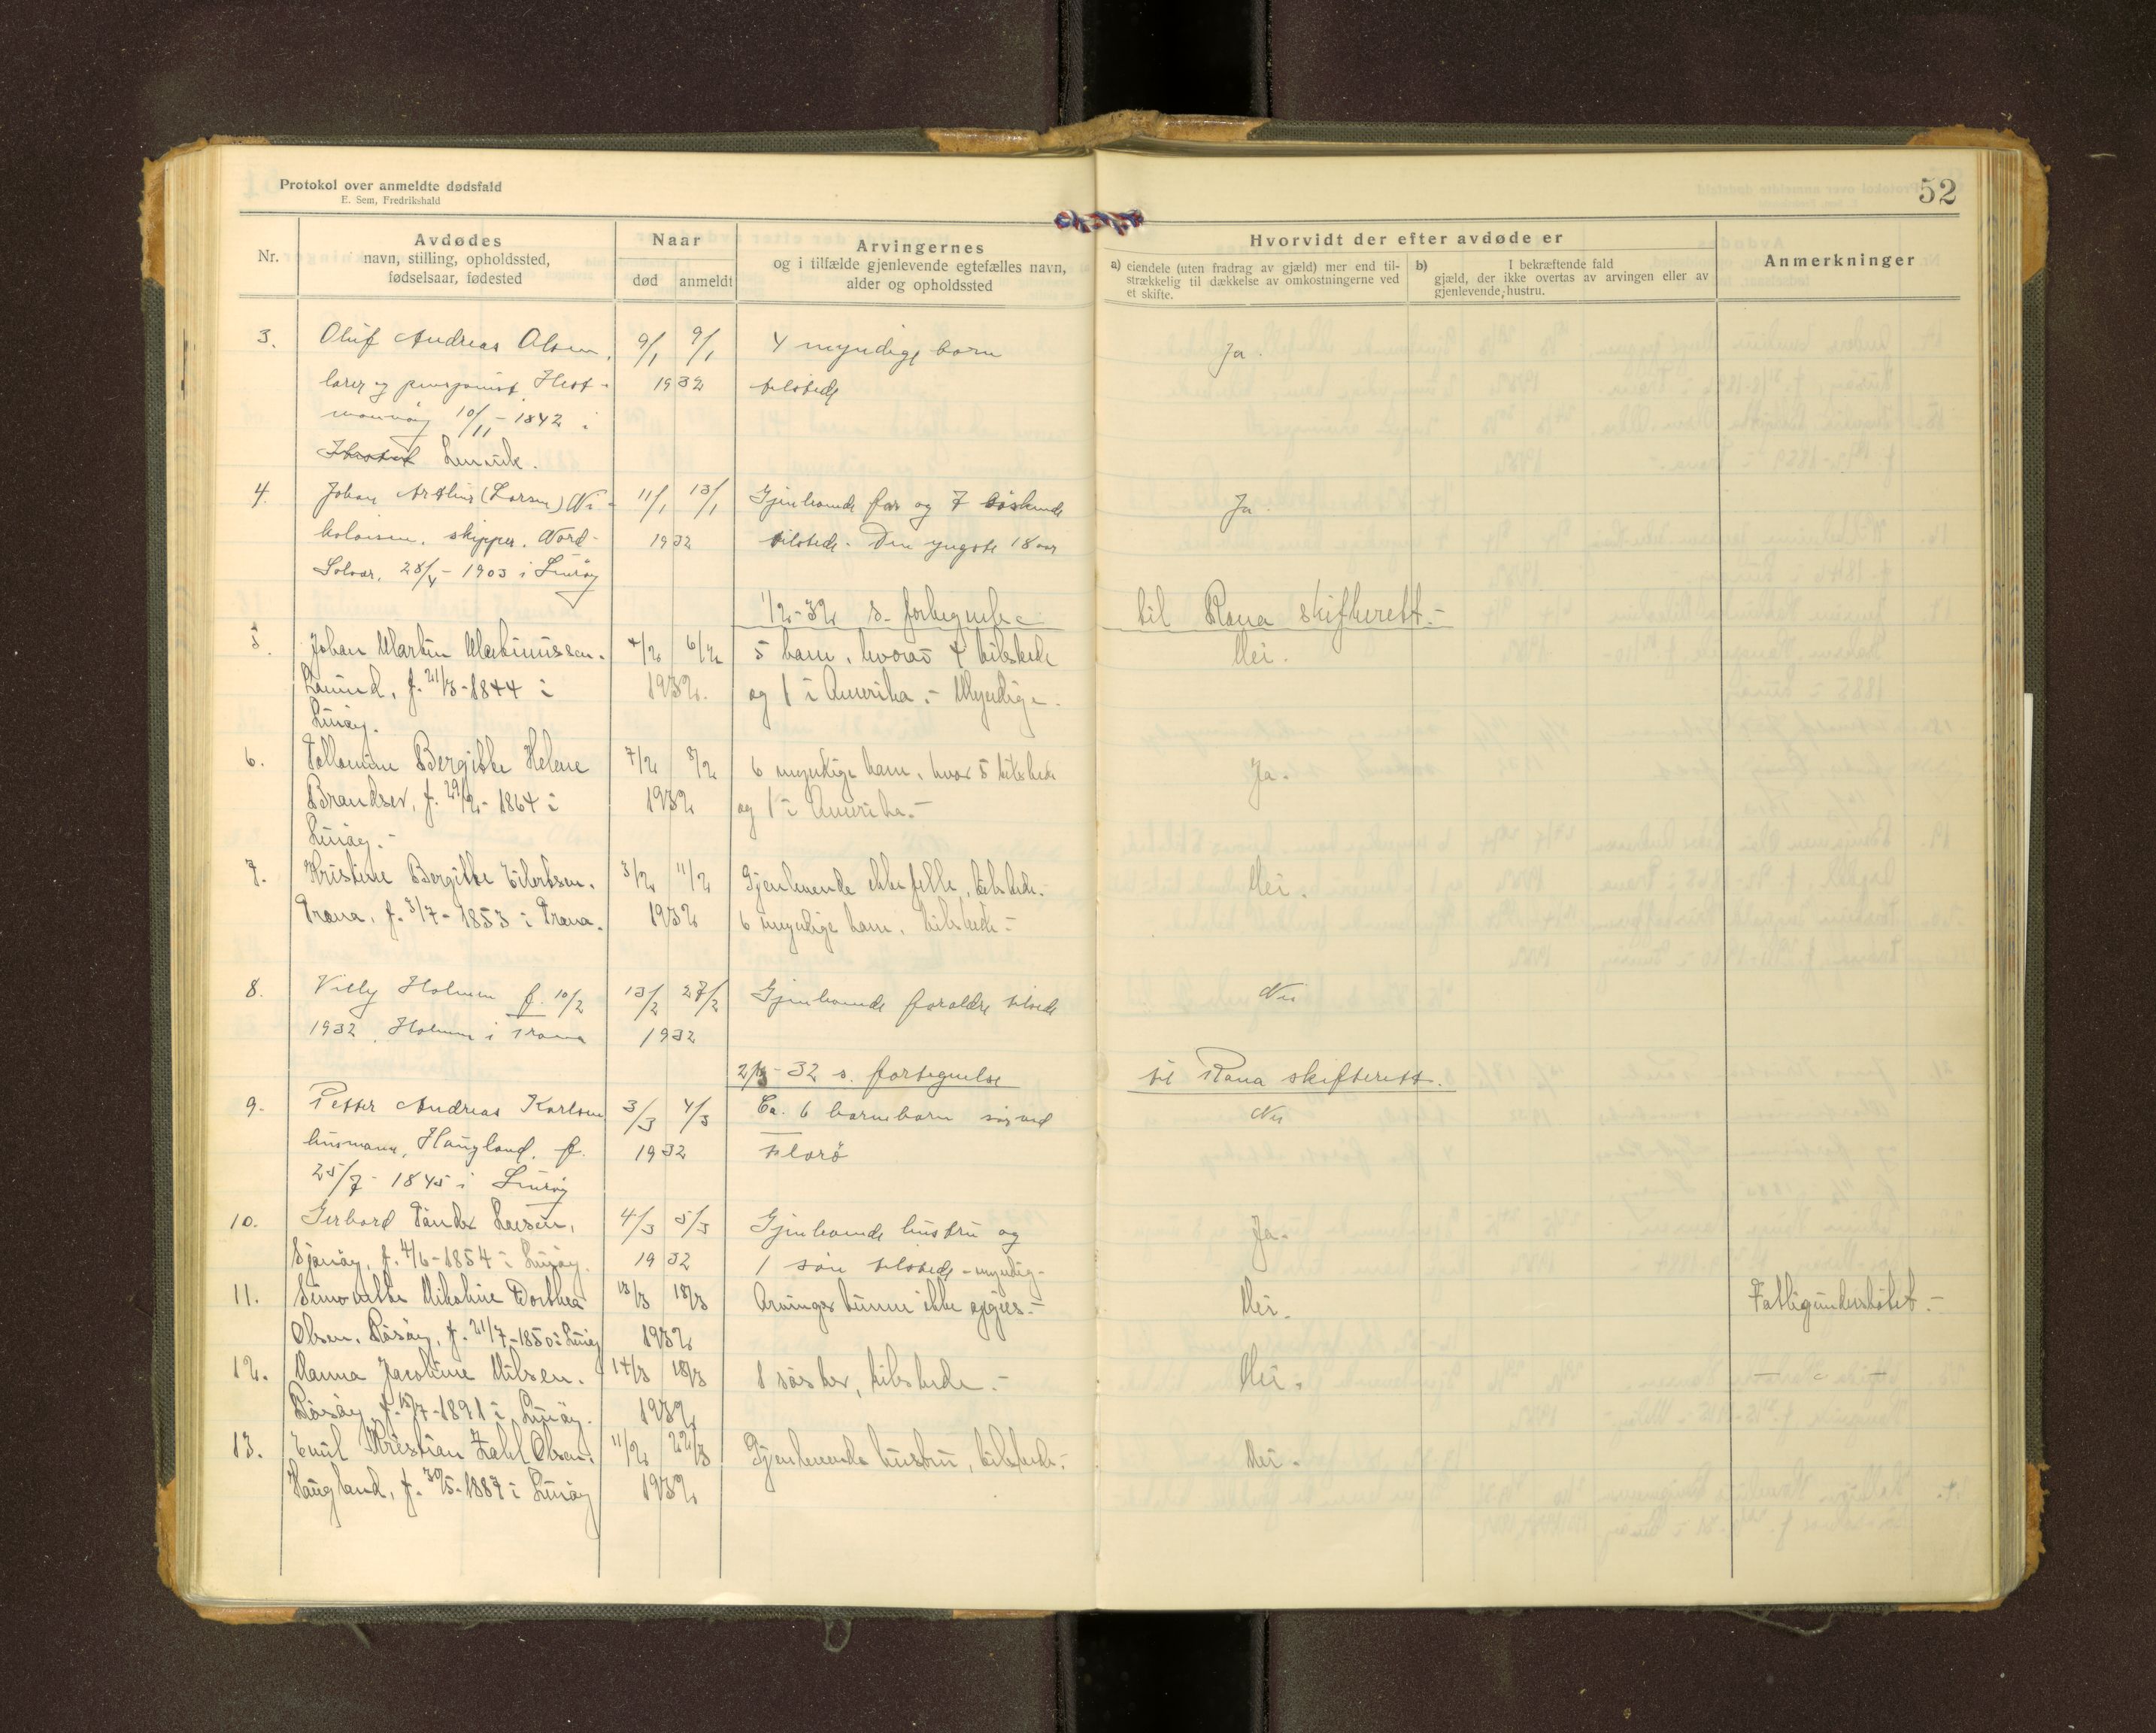 Protokol over anmeldte dødsfald
E. Sem, Fredrikshald
52
Nr.
Avdødes
navn, stilling, opholdssted,
fødselsaar, fødested
Naar
død anmeldt
Arvingernes
og i tilfælde gjenlevende egtefælles navn,
alder og opholdssted
Hvorvidt der efter avdøde er
a) eiendele (uten fradrag av gjæld) mer end til-
strækkelig til dækkelse av omkostningerne ved
et skifte.
b) I bekræftende fald
gjæld, der ikke overtas av arvingen eller av
gjenlevende hustru.
Anmerkninger
3. Oluf Andreas Olsen, 9/1 9/1 4 myndige barn Ja.
lærer og pensjonist, Hest- 1932 tilstede
mannøy 10/11-1842 i
Lenvik.
4. Johan Arthur (Larsen) Ni- 11/1 13/1 Gjenlevende far og 7 søskende Ja.
kolaisen, skipper, Nord- 1932 tilstede. Den yngste 18 aar
Solvær, 28/4-1903 i Lurøy
1/2-32 s. fortegnelse til Rana skifterett.-
5. Johan Martin Martinussen. 4/2 6/2 5 barn, hvorav 4 tilstede Nei.
f. 21/3-1844 i 1932. og 1 i Amerika.- Myndige.
Lurøy.
6. Bergitte Helene 7/2 8/2 6 myndige barn, hvor 5 tilstede Ja.
f. 29/2-1864 i 1932 og 1 i Amerika.-
Lurøy.-
7. Kristine Bergitte Eilertsen. 3/2 11/2 Gjenlevende ektefelle, tilstede.- Nei.
Træna, f. 3/7-1853 i Træna. 1932 6 myndige barn, tilstede.-
8. Villy Holmen f. 10/2 13/2 27/2 Gjenlevende foreldre tilstede Nei
1932. Holmen i Træna 1932
2/3-32 s. fortegnelse til Rana skifterett.
9. Petter Andreas Karlsen 3/3 4/3 Ca. 6 barnebarn ved Nei
husmann, Haugland, f. 1932 Florø
25/7-1845 i Lurøy
10. Gerhard Tander Larsen, 4/3 5/3 Gjenlevende hustru og Ja.
Sjonøy, f. 4/6-1854 i Lurøy. 1932 1 søn tilstede - myndig-
11. Nikoline Dorthea 13/3 18/3 Arvinger kunne ikke opgies.- Nei. Fattigunderstøtet.-
Olsen, Råsøy, f. 21/7-1850 i Lurøy 1932
12. Hanna Jacobine Nilsen. 14/3 18/3 1 søster, tilstede.- Nei. — " —
Råsøy, f. 15/7-1891 i Lurøy. 1932
13. Emil Kristian Zahl Olsen. 11/2 22/3 Gjenlevende hustru, tilstede.- Nei.
Haugland, f. 30/5-1887 i Lurøy 1932